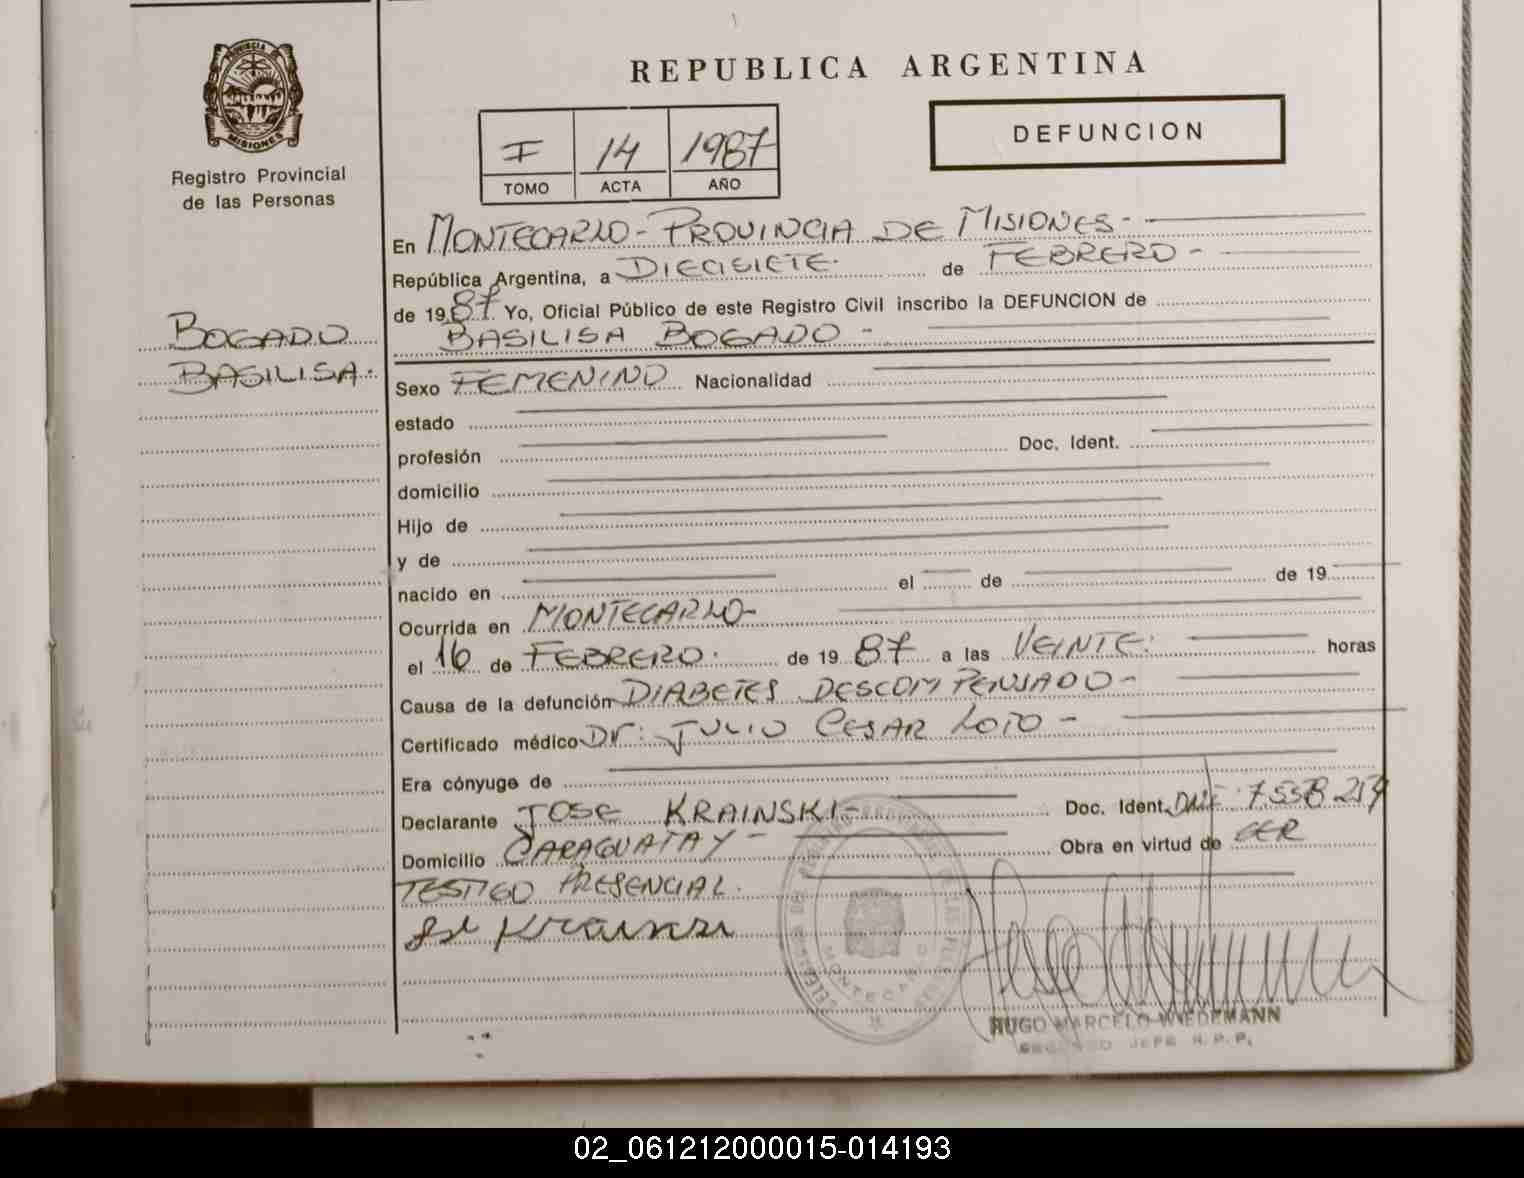 PROVINCIA DE
MISIONES
Registro Provincial
de las Personas
BOGADO
BASILISA.
REPUBLICA ARGENTINA
I 14 1987
TOMO ACTA AÑO
DEFUNCION
En MONTECARLO - PROVINCIA DE MISIONES -
República Argentina, a DIECISIETE. de FEBRERO -
de 1987. Yo, Oficial Público de este Registro Civil inscribo la DEFUNCION de
BASILISA BOGADO -
Sexo FEMENINO Nacionalidad
estado
profesión Doc. Ident.
domicilio
Hijo de
y de
nacido en el de de 19
Ocurrida en MONTECARLO-
el 16 de FEBRERO. de 19 87 a las VEINTE. horas
Causa de la defunción DIABETES DESCOMPENSADO -
Certificado médico Dr: JULIO CESAR LOTO -
Era cónyuge de
Declarante JOSE KRAINSKI- Doc. Ident. DNI: 7558254
Domicilio CARAGUATAY - Obra en virtud de SER
TESTIGO PRESENCIAL.
MONTECARLO
HUGO MARCELO WIEDEMANN
SEGUNDO JEFE R.P.P.
02_061212000015-014193